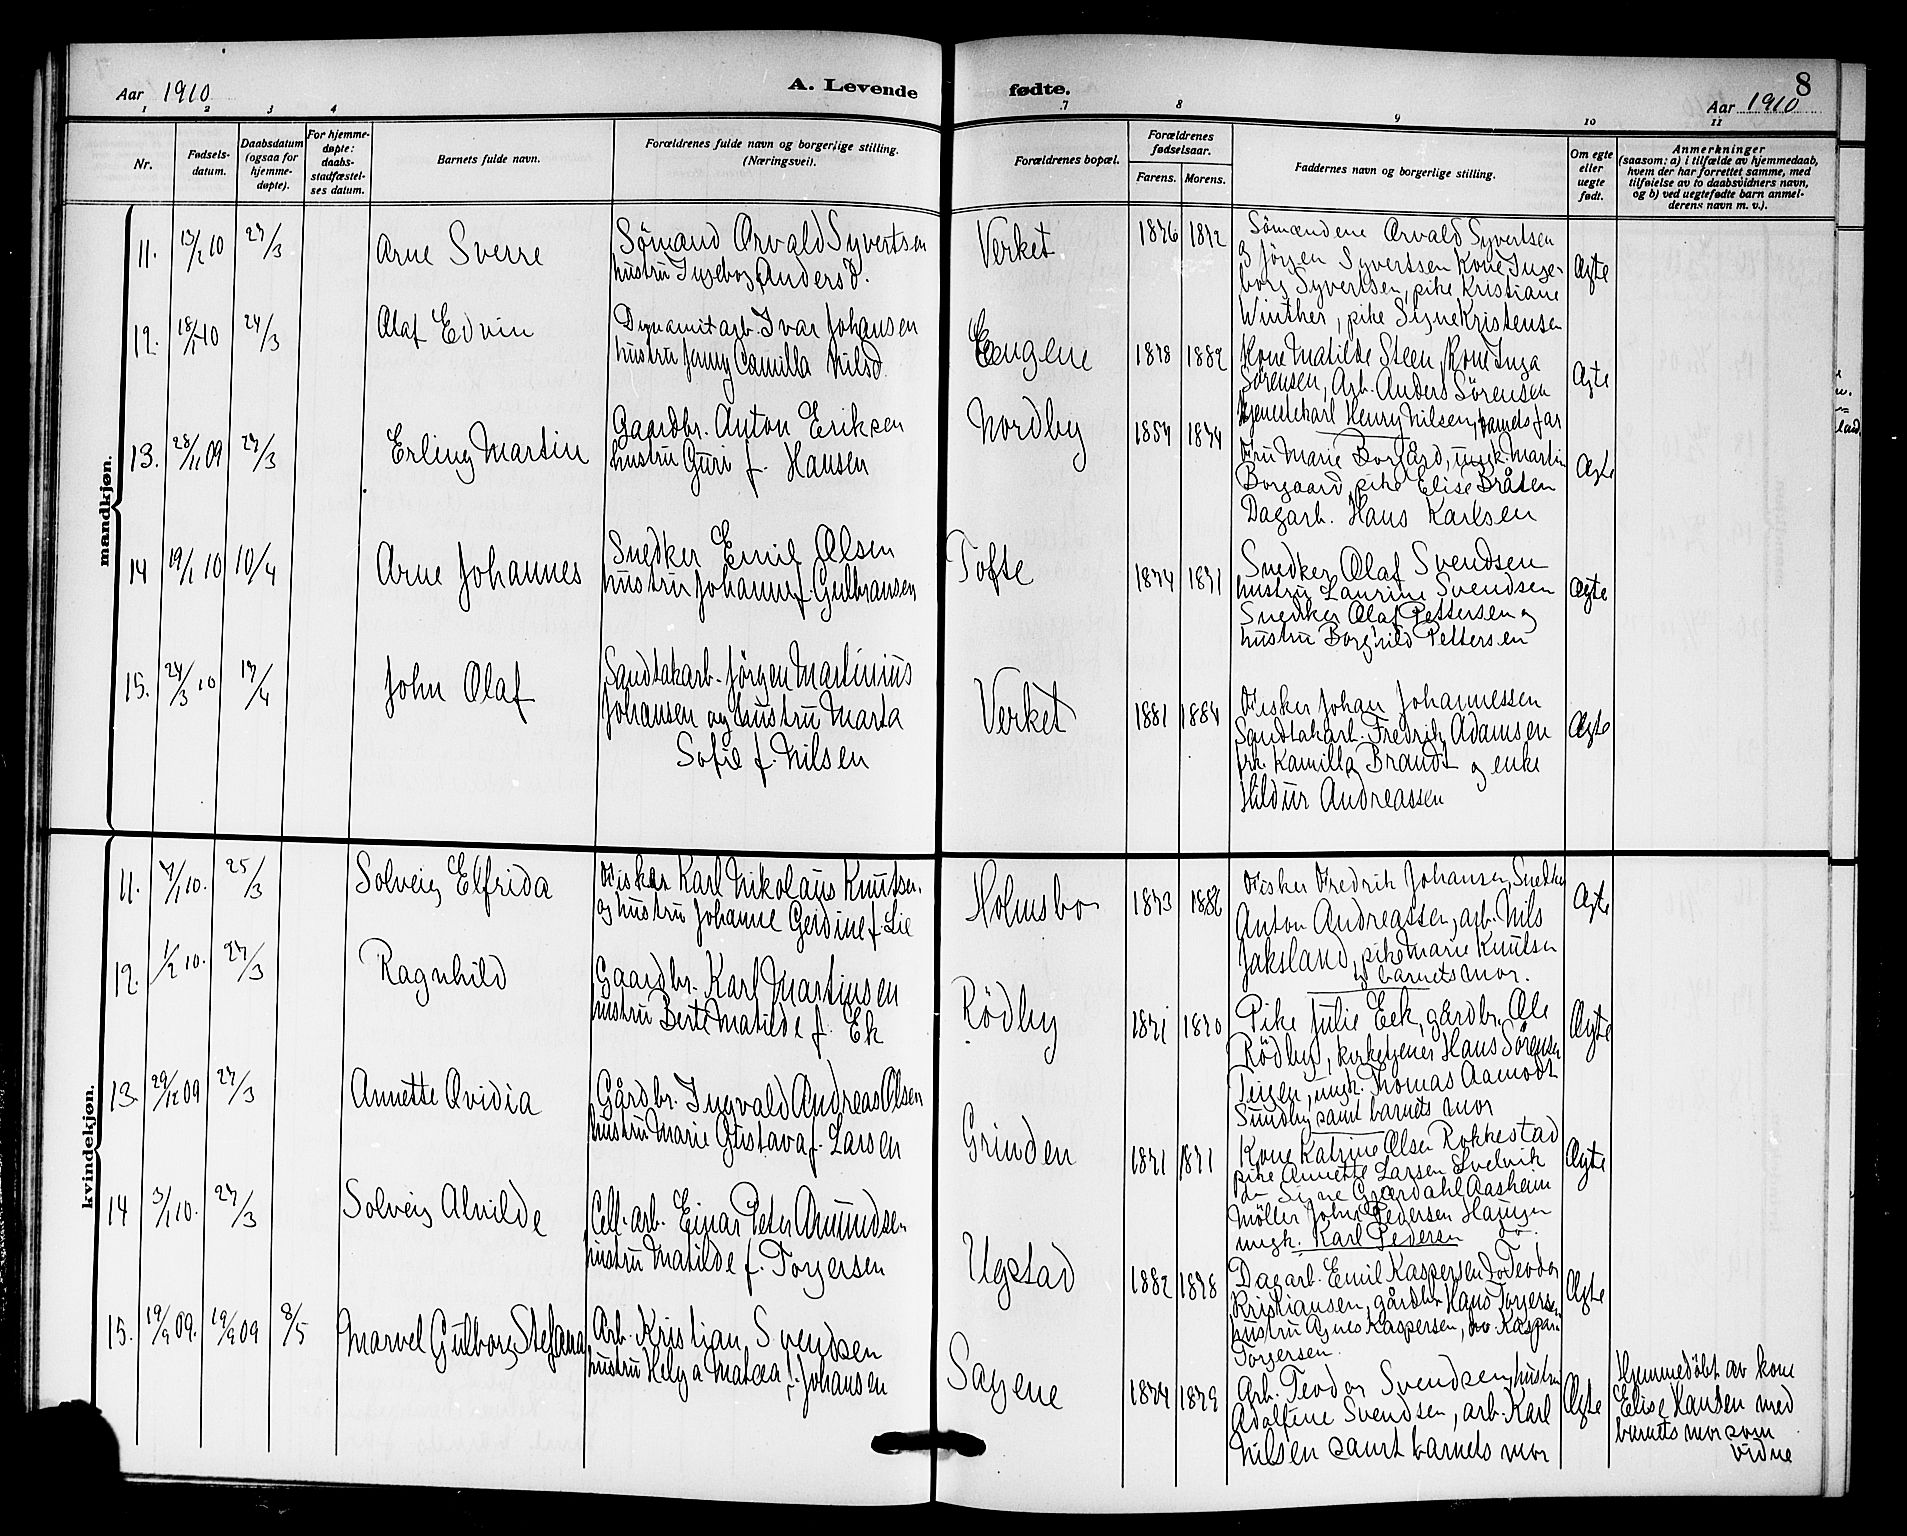 Aar 1910
A. Levende
fødte.
8
Aar 1910
1 2 3 4 7 8 9 10 11
Nr.
Fødsels-
datum.
Daabsdatum
(ogsaa for
hjemme-
døpte).
For hjemme-
døpte:
daabs-
stadfæstel-
ses datum.
Barnets fulde navn.
Forældrenes fulde navn og borgerlige stilling.
(Næringsvei).
Forældrenes bopæl.
Forældrenes
fødselsaar.
Farens. Morens.
Faddernes navn og borgerlige stilling.
Om egte
eller
uegte
født.
Anmerkninger
(saasom: a) i tilfælde av hjemmedaab,
hvem der har forrettet samme, med
tilføielse av to daabsvidners navn,
og b) ved uegtefødte barn anmel-
derens navn m. v.).
mandkjøn.
11. 13/2 10 27/3
Arne Sverre
Sømand Arvald Syvertsen
hustru Ingeborg Andersd.
Verket
1876 1872
Sømændene Arvald Syvertsen
og Jørgen Syvertsen Kone Inge-
borg Syvertsen, pike Kristiane
Winther, pike Signe Kristensen
Ægte
12. 18/1 10 24/3
Olaf Edvin
Dynamitarb. Ivar Johansen
hustru Jenny Camilla Nilsd.
Engene
1878 1882
Kone Matilde Steen, Kone Inga
Sørensen, Arb. Anders Sørensen
tjenestekarl Henry Nilsen, barnets far
Ægte
13. 28/11 09 27/3
Erling Martin
Gaardbr. Anton Eriksen
hustru Guri f. Hansen
Nordby
1854 1874
Fru Marie Borgård, ungk. Martin
Borgaard, pike Elise Bråten
Dagarb. Hans Karlsen
Ægte
14 19/1 10 10/4
Arne Johannes
Snedker Emil Olsen
hustru Johanne f. Gulbransen
Tofte
1874 1871
Snedker Olaf Svendsen
hustru Laurine Svendsen
Snedker Olaf Pettersen og
hustru Borghild Pettersen
Ægte
15. 24/3 10 17/4
John Olaf
Sandtakarb. Jørgen Martinius
Johansen og hustru Marta
Sofie f. Nilsen
Verket
1881 1884
Fisker Johan Johannessen
Sandtakarb. Fredrik Adamsen
frk. Kamilla Brandt og enke
Hildur Andreassen
Ægte
kvindekjøn.
11. 7/1 10. 25/3
Solveig Elfrida
Fisker Karl Nikolaus Knutsen
og hustru Johanne Gerdine f. Lie
Holmsbo
1873 1886
Fisker Fredrik Johansen, Snedker
Anton Andreassen, arb. Nils
Jaksland, pike Marie Knutsen
og barnets mor.
Ægte
12. 1/2 10. 27/3
Ragnhild
Gaardbr. Karl Martinsen
hustru Berte Matilde f. Ek
Rødby
1871 1870
Pike Julie Eek, gårdbr. Ole
Rødby, kirketjener Hans Sørensen
Teigen, ungk. Thomas Aamodt
Sundby samt barnets mor
Ægte
13. 29/12 09 27/3
Annette Ovidia
Gårdbr. Ingvald Andreas Olsen
hustru Marie Gustava f. Larsen
Grinden
1871 1871
Kone Katrine Olsen Rokkestad
pike Annette Larsen Svelvik
do Signe Gjærdahl Aasheim
Møller John Pedersen Haugen
ungk. Karl Pedersen do.
Ægte
14 3/1 10. 27/3
Solveig Alvilde
Cell. arb. Einar Peter Amundsen
hustru Matilde f. Torjersen
Ugstad
1882 1878
Dagarb. Emil Kaspersen do Teodor
Kristiansen, gårdbr Hans Torjersen
hustru Agnes Kaspersen, Kaspara
Torjersen.
Ægte
15. 19/9 09. 19/9 09 8/5
Marvel Gulborg Stefana
Arb. Kristian Svendsen
hustru Helga Matea f. Johansen
Sagene
1874 1879
Arb. Teodor Svendsen, hustru
Adolfine Svendsen, arb. Karl
Nilsen samt barnets mor
Ægte
Hjemmedøbt av kone
Elise Hansen med
barnets mor som
vidne